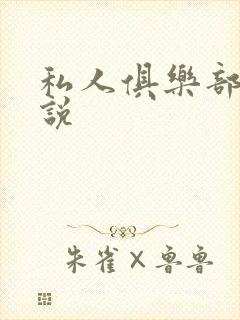 私人俱樂部
說
朱雀×魯魯